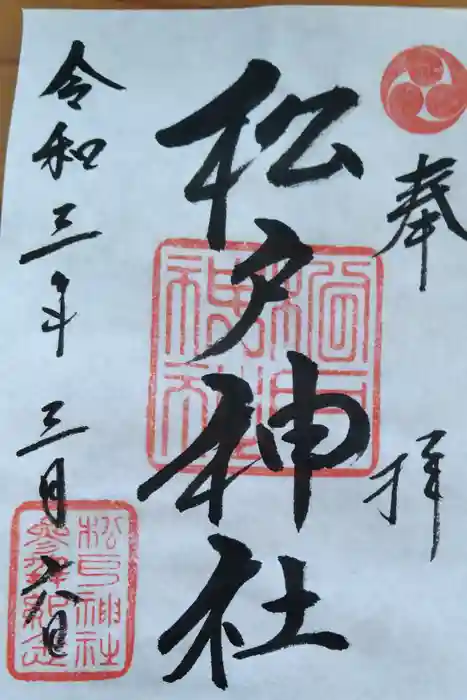 奉拝
松戸神社
松戸神社
令和三年三月六日
松戸神社
参拝記念